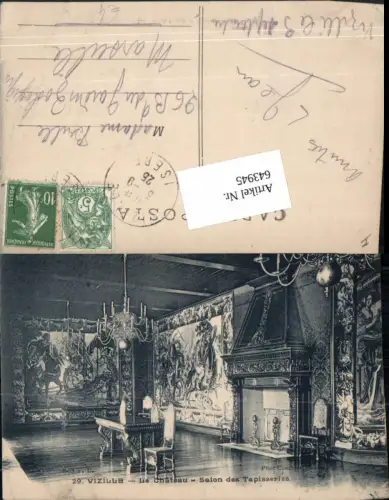 Vizille le 3 septembre
Amitiés
Jean
Madame
96 Bd du Jardin Zoologique
Marseille
CARTE POSTALE
ISERE
25
10
POSTES
5
Artikel Nr.
643945
29. VIZILLE - Le Château - Salon des Tapisseries